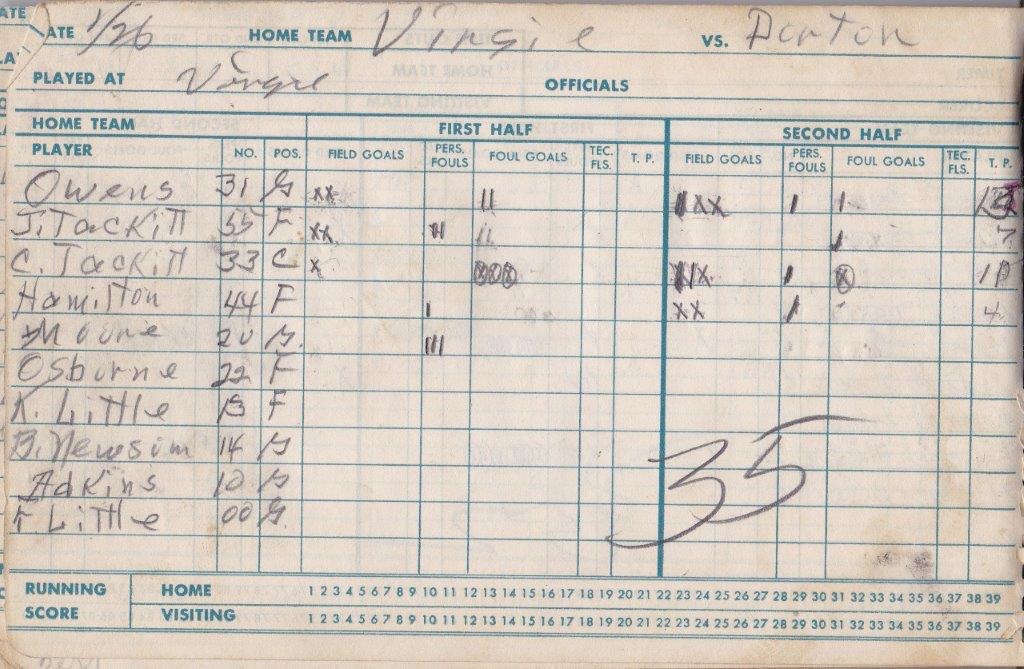 ATE 1/26 HOME TEAM Virgie VS. Dorton
PLAYED AT Virgie OFFICIALS
HOME TEAM FIRST HALF SECOND HALF
PLAYER NO. POS. FIELD GOALS PERS. FOULS FOUL GOALS TEC. FLS. T. P. FIELD GOALS PERS. FOULS FOUL GOALS TEC. FLS. T. P.
Owens 31 G xx II xx I I
J. Tackitt 55 F xx II II I 7
C. Tackitt 33 C x xxx IIx I x 10
Hamilton 44 F I xx I 4
Moore 20 G. III
Osborne 22 F
K. Little 13 F
B. Newsom 14 G
Adkins 10 G
F Little 00 G.
35
RUNNING SCORE
HOME 1 2 3 4 5 6 7 8 9 10 11 12 13 14 15 16 17 18 19 20 21 22 23 24 25 26 27 28 29 30 31 32 33 34 35 36 37 38 39
VISITING 1 2 3 4 5 6 7 8 9 10 11 12 13 14 15 16 17 18 19 20 21 22 23 24 25 26 27 28 29 30 31 32 33 34 35 36 37 38 39